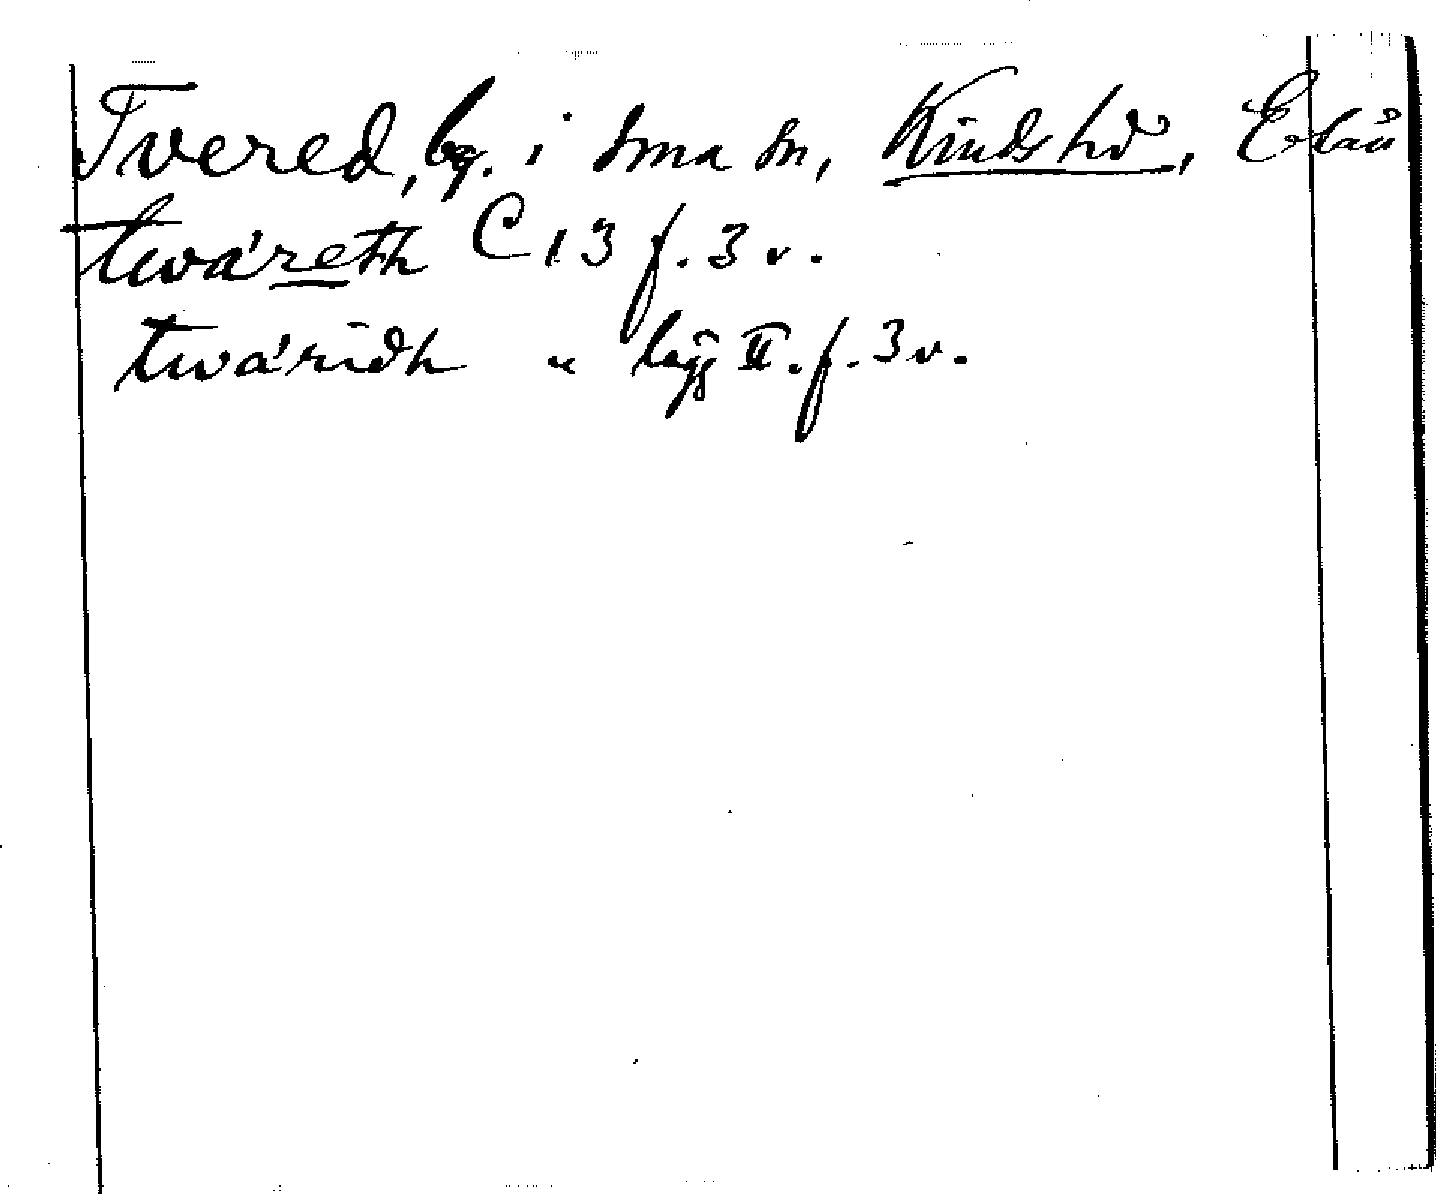 Tvered, bg. i sma sn, Kinds hd, Elbå
twáreth C 13 f. 3 v.
twáridh " lägg II. f. 3 v.